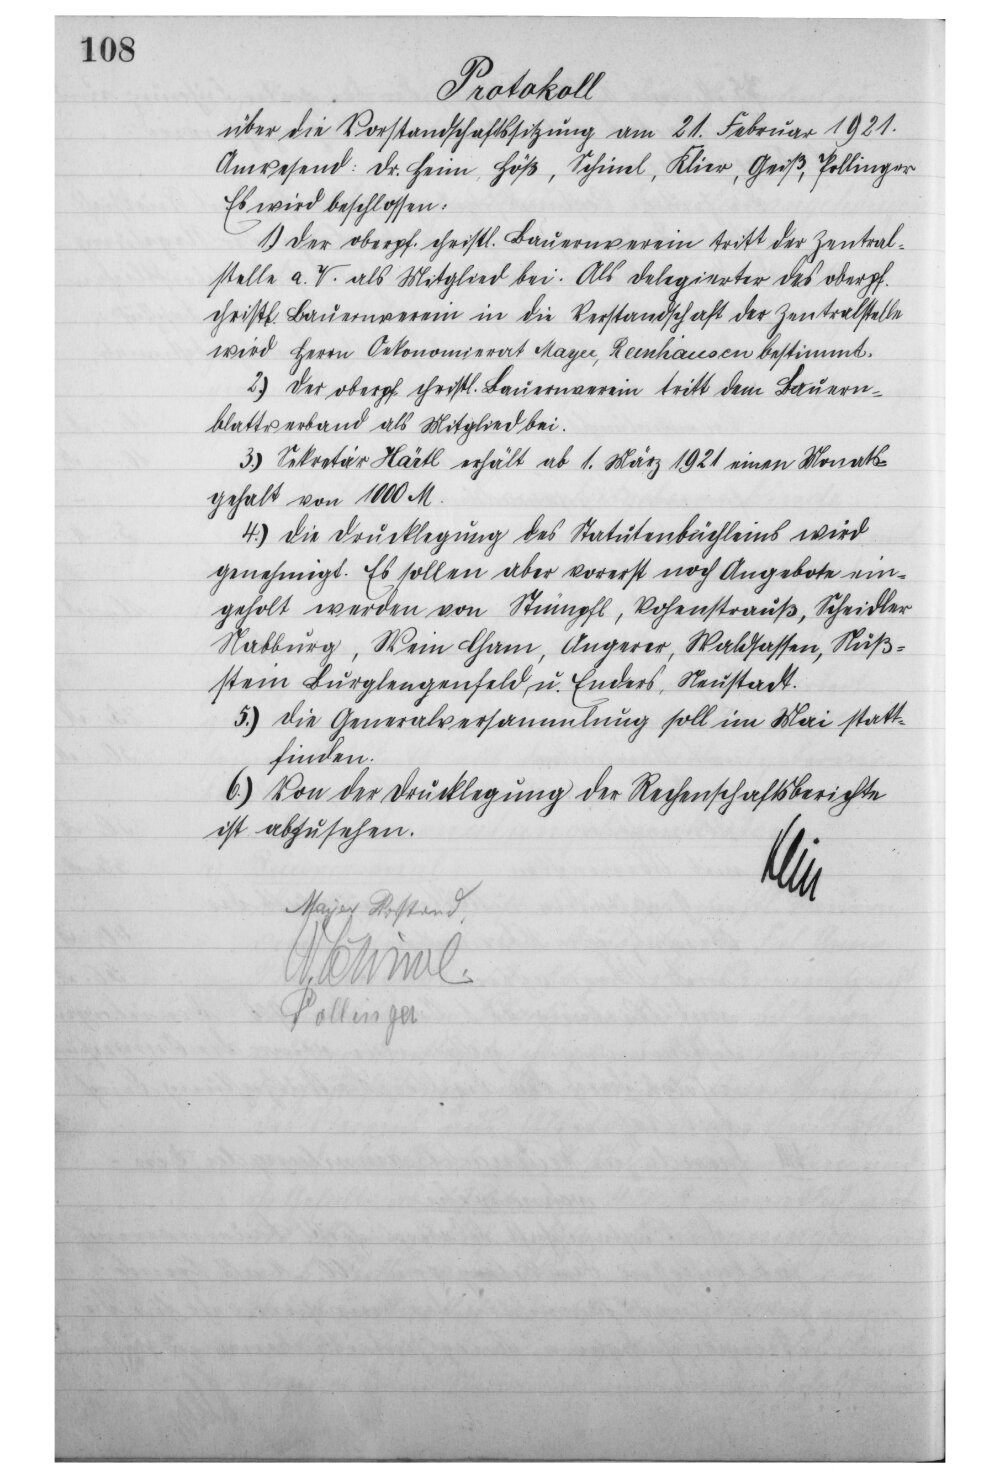 108
Protokoll
über die Vorstandschaftssitzung am 21. Februar 1921.
Anwesend: Dr. Heim, Höß, Schinel, Klier, Geiß, Pollinger
Es wird beschlossen:
1.) Der oberpf. christl. Bauernverein tritt der Zentral-
stelle a. V. als Mitglied bei. Als Delegierter des oberpf.
christl. Bauernverein in die Vorstandschaft der Zentralstelle
wird Herrn Oekonomierat Mayer, Reinhausen bestimmt.
2.) Der oberpf. christl. Bauernverein tritt dem Bauern-
blattverband als Mitglied bei.
3.) Sekretär Härtl erhält ab 1. März 1921 einen Monats-
gehalt von 1000 M.
4.) Die Drucklegung des Statutenbüchleins wird
genehmigt. Es sollen aber vorerst noch Angebote ein-
geholt werden von Stümpfl, Vohenstrauß, Scheidler
Nabburg, Wein Cham, Angerer, Waldsassen, Nuß-
stein Burglengenfeld u. Enders, Neustadt.
5.) Die Generalversammlung soll im Mai statt-
finden.
6.) Von der Drucklegung der Rechenschaftsberichte
ist abzusehen.
Mayer Vorstand.
Schinel.
Pollinger